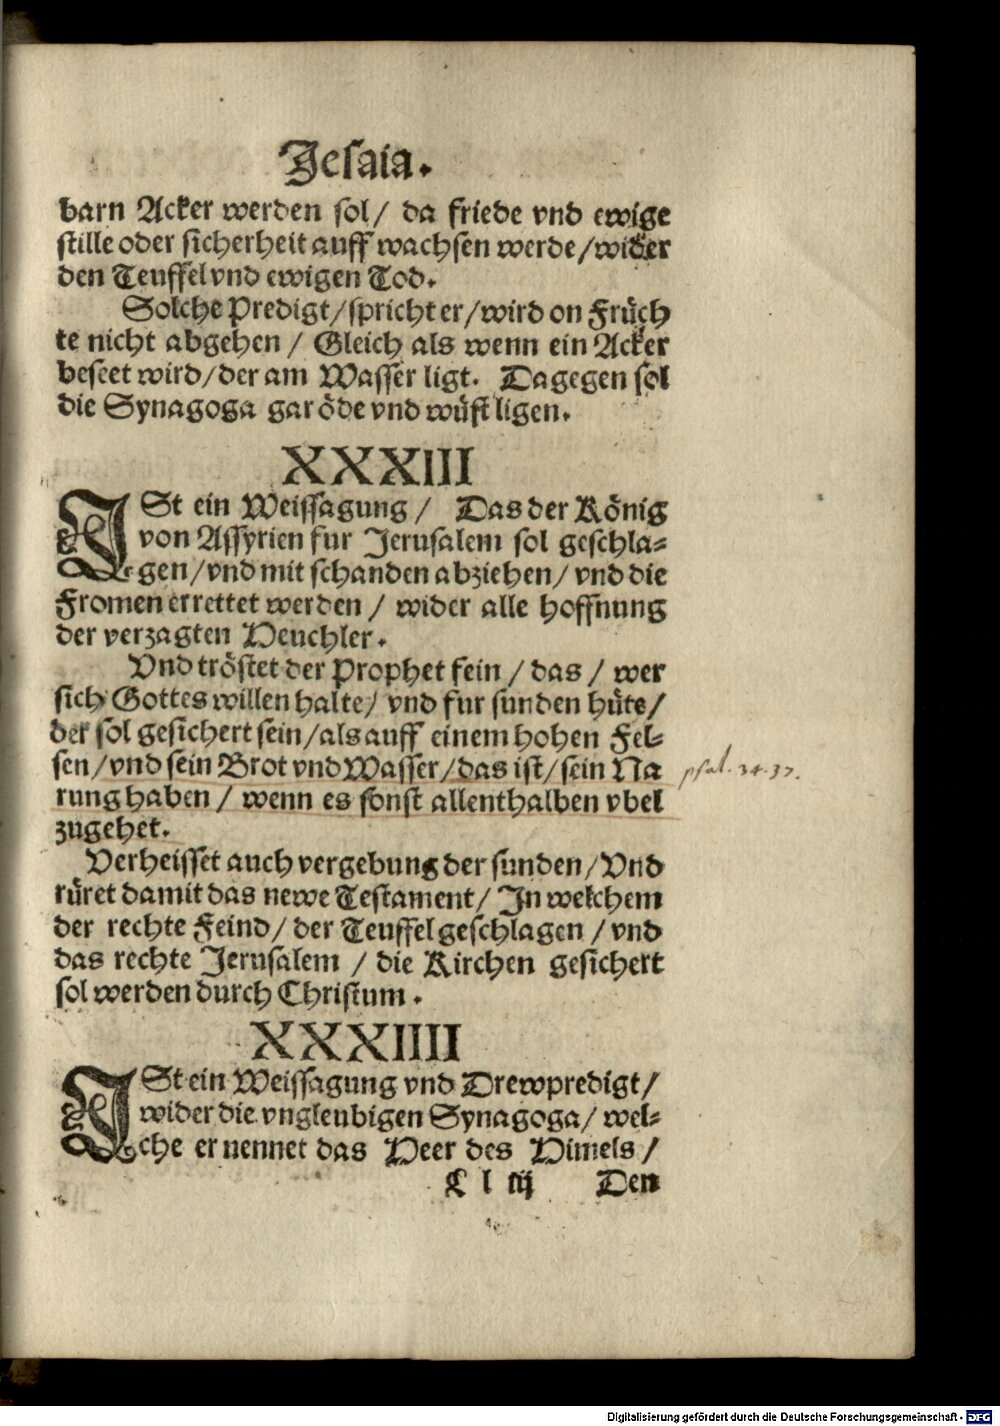 Jesaia.
barn Acker werden sol/ da friede vnd ewige
stille oder sicherheit auff wachsen werde/wider
den Teuffel vnd ewigen Tod.
Solche Predigt/spricht er/wird on Früch
te nicht abgehen/ Gleich als wenn ein Acker
beseet wird/der am Wasser ligt. Dagegen sol
die Synagoga gar öde vnd wüst ligen.
XXXIII
ISt ein Weissagung/ Das der König
von Assyrien fur Jerusalem sol geschla-
gen/vnd mit schanden abziehen/ vnd die
Fromen errettet werden/ wider alle hoffnung
der verzagten Heuchler.
Vnd tröstet der Prophet fein/das/ wer
sich Gottes willen halte/ vnd fur sunden hüte/
der sol gesichert sein/als auff einem hohen Fel-
sen/vnd sein Brot vnd Wasser/das ist/sein Na
rung haben/ wenn es sonst allenthalben vbel
zugehet.
psal. 34.37.
Verheisset auch vergebung der sunden/Vnd
rüret damit das newe Testament/ In welchem
der rechte Feind/ der Teuffel geschlagen/vnd
das rechte Jerusalem/ die Kirchen gesichert
sol werden durch Christum.
XXXIIII
ISt ein Weissagung vnd Drewpredigt/
wider die vngleubigen Synagoga/ wel-
che er nennet das Heer des Himels/
C l iij Den
Digitalisierung gefördert durch die Deutsche Forschungsgemeinschaft - DFG